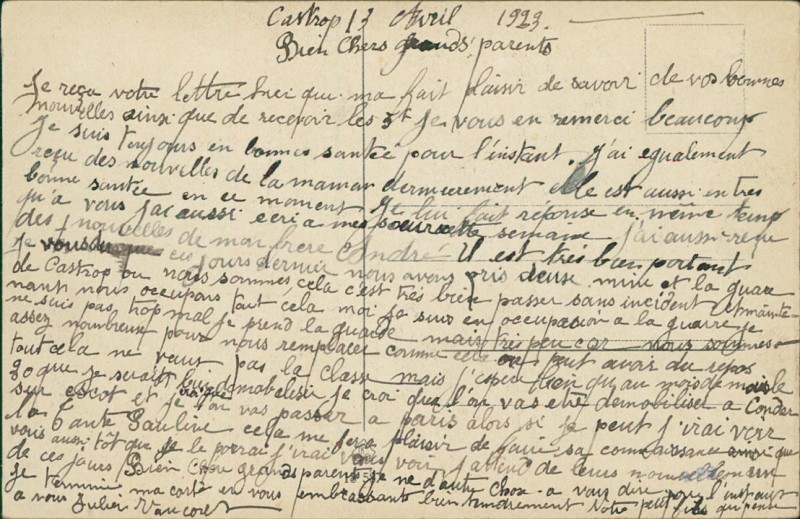 Castrop 13 Avril 1923.
Bien Chers grands parents
Je reçu votre lettre hier qui ma fait plaisir de savoir de vos bonnes
nouvelles ainsi que de recevoir les 5f Je vous en remerci beaucoup
Je suis toujours en bonnes santée pour l'instant. J'ai egualement
reçu des nouvelles de la maman dernierement elle est aussi en tres
bonne santée en ce moment Je lui fait réponse en même temp
qu'a vous j'ai aussi ecri a mes soeurs cette semaine j'ai aussi reçu
des nouvelles de mon frere André Il est très bien portant
Je ces jours dernier nous avons pris deuse mine et la guare
de Castrop ou nous sommes cela c'est très bien passer sans incident Et mainte-
nant nous occupons tout cela moi je suis en occupasion a la guarre je
ne suis pas trop mal je prend la guarde mais très peu car nous sommes
assez nombreux pour nous remplacer comme cela on peut avoir du repos
tout cela ne vaux pas la classe mais j'espere bien qu'au mois de mai le
30 que je serais demobaliser je croi que l'on vas etre demobiliser a Conder
sur Escot et l'on vas passer a paris alors si je peut j'irai voir
la tante Pauline cela me fera plaisir de faire sa connaissance
vous aussi tôt que je le pourai j'irai vous voir j'attend de leurs nouvelles un
de ces jours Bien Chere grands parents je ne d'autre chose a vous dire pour l'instant
Je termine ma carte en vous embrassant bien tendrement Votre petit fils qui pense
a vous Julien